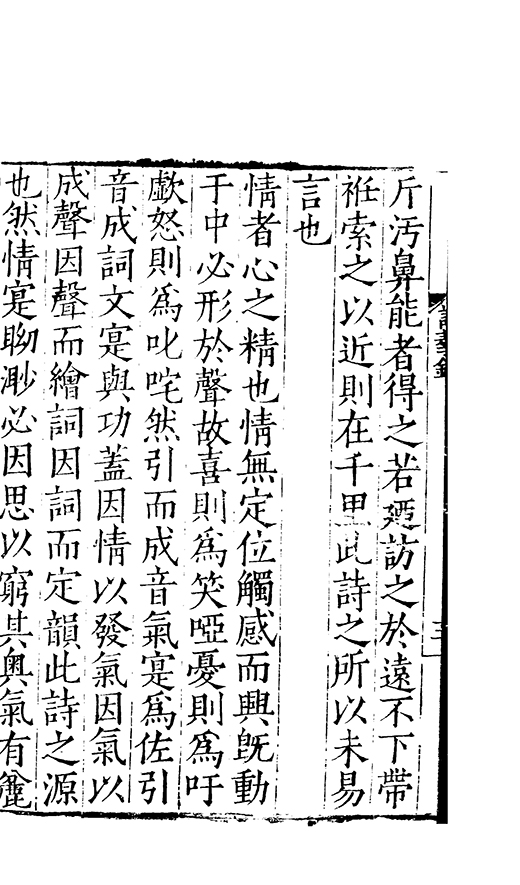 斤汚鼻能者得之若廵訪之於遠不下帶
袵索之以近則在千里此詩之所以未易
言也
情者心之精也情無定位觸感而興旣動
于中必形於聲故喜則爲笑啞憂則爲吁
歔怒則爲叱咤然引而成音氣寔爲佐引
音成詞文寔與功蓋因情以發氣因氣以
成聲因聲而繪詞因詞而定韻此詩之源
也然情寔眑渺必因思以窮其奥氣有麄